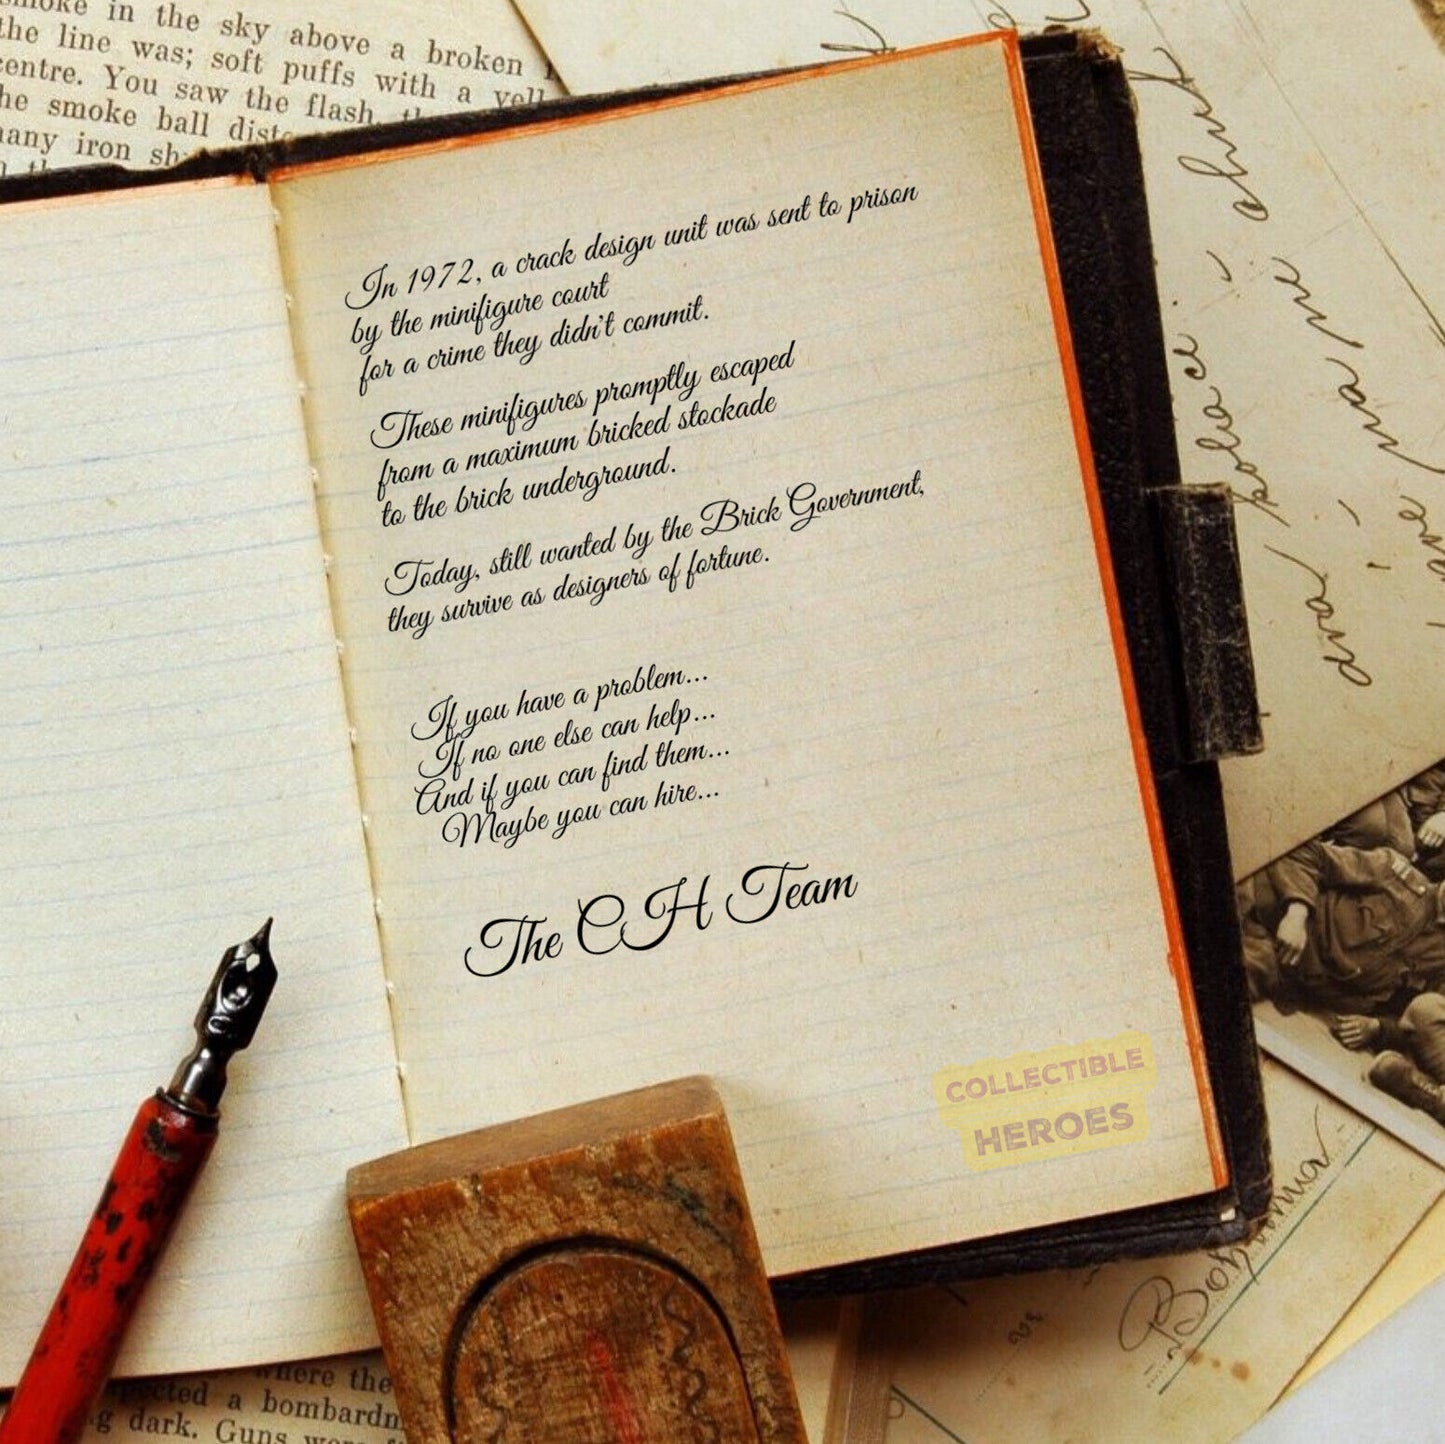 smoke in the sky above a broken
the line was; soft puffs with a
centre. You saw the flash,
the smoke ball
many iron
In 1972, a crack design unit was sent to prison
by the minifigure court
for a crime they didn't commit.
These minifigures promptly escaped
from a maximum bricked stockade
to the brick underground.
Today, still wanted by the Brick Government,
they survive as designers of fortune.
If you have a problem...
If no one else can help...
And if you can find them...
Maybe you can hire...
The CH Team
COLLECTIBLE
HEROES
where the
a bombardm
dark. Guns